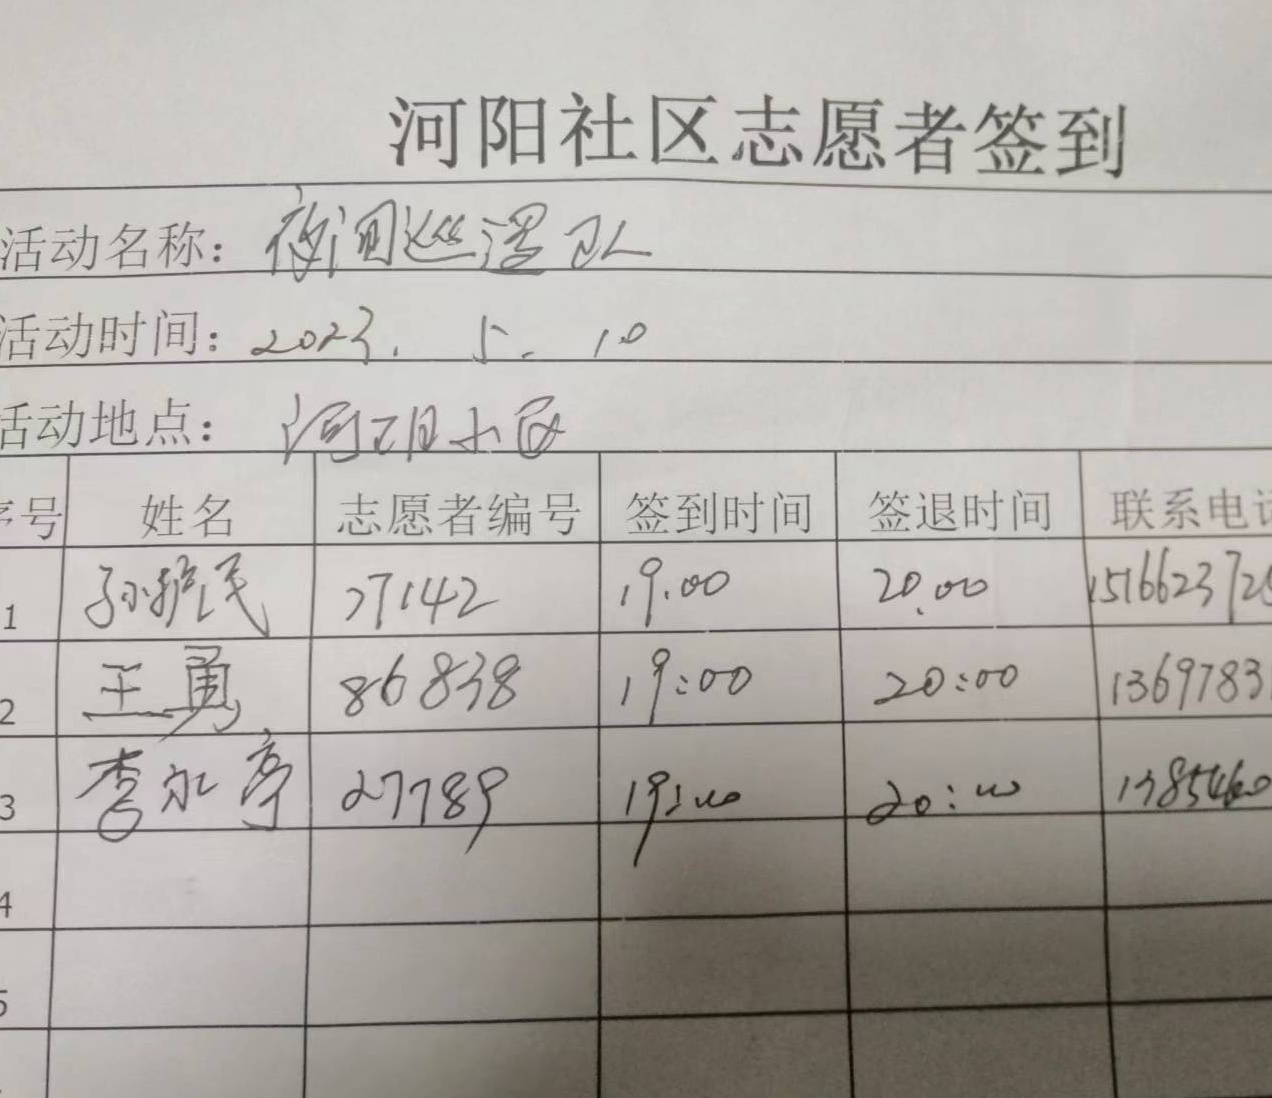 河阳社区志愿者签到
活动名称：夜间巡逻队
活动时间：2023.5.10
活动地点：河阳小区
序号 姓名 志愿者编号 签到时间 签退时间 联系电话
1 孙护民 27142 19.00 20.00 151662372
2 王勇 86838 19:00 20:00 13697831
3 李永亭 27789 19:00 20:00 1785460
4
5